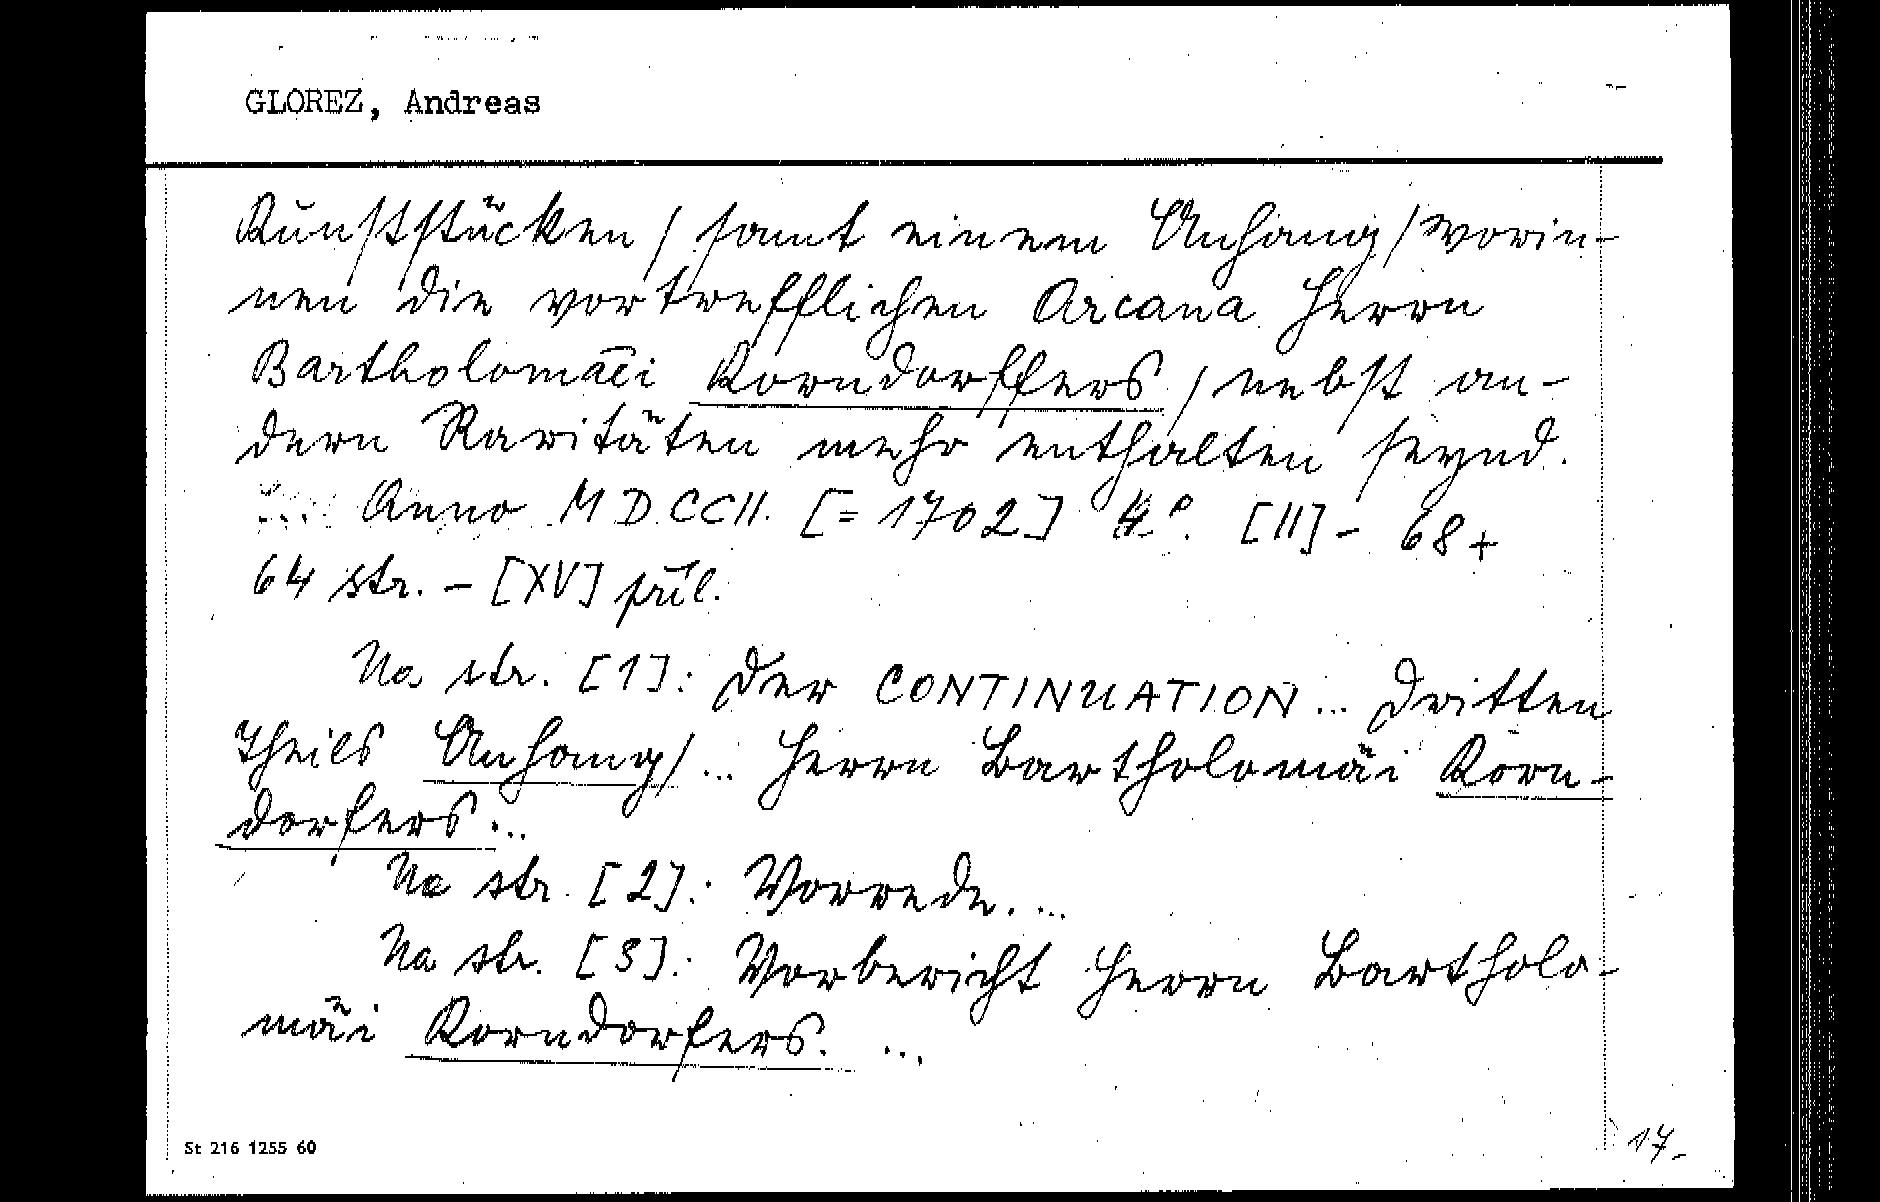 GLOREZ, Andreas
Kunststücken / samt einem Anhang / worin-
nen die vortrefflichen Arcana Herrn
Bartholomaei Korndorffers / nebst an-
dern Raritäten mehr enthalten seynd.
... Anno MDCCII. [= 1702] 4°. [II] - 68 +
64 str. - [XV] příl.
Na str. [1]: Der CONTINUATION ... Dritten
Theils Anhang / ... Herrn Bartholomäi Korn-
dorfers ...
Na str. [2]: Vorrede. ...
Na str. [3]: Vorbericht Herrn Bartholo-
mäi Korndorfers. ...
St 216 1255 60
17.